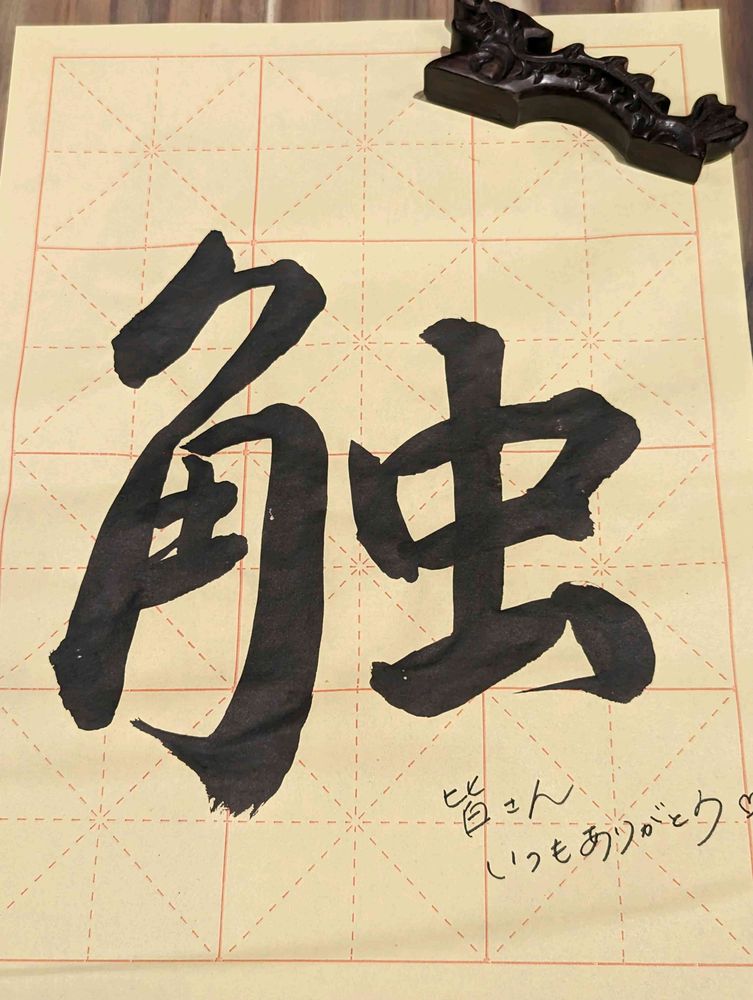 触
皆さん
いつもありがとう♡